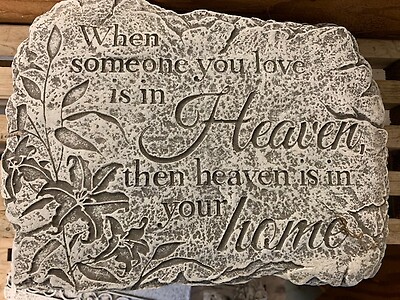 When
someone you love
is in Heaven,
then heaven is in
your home